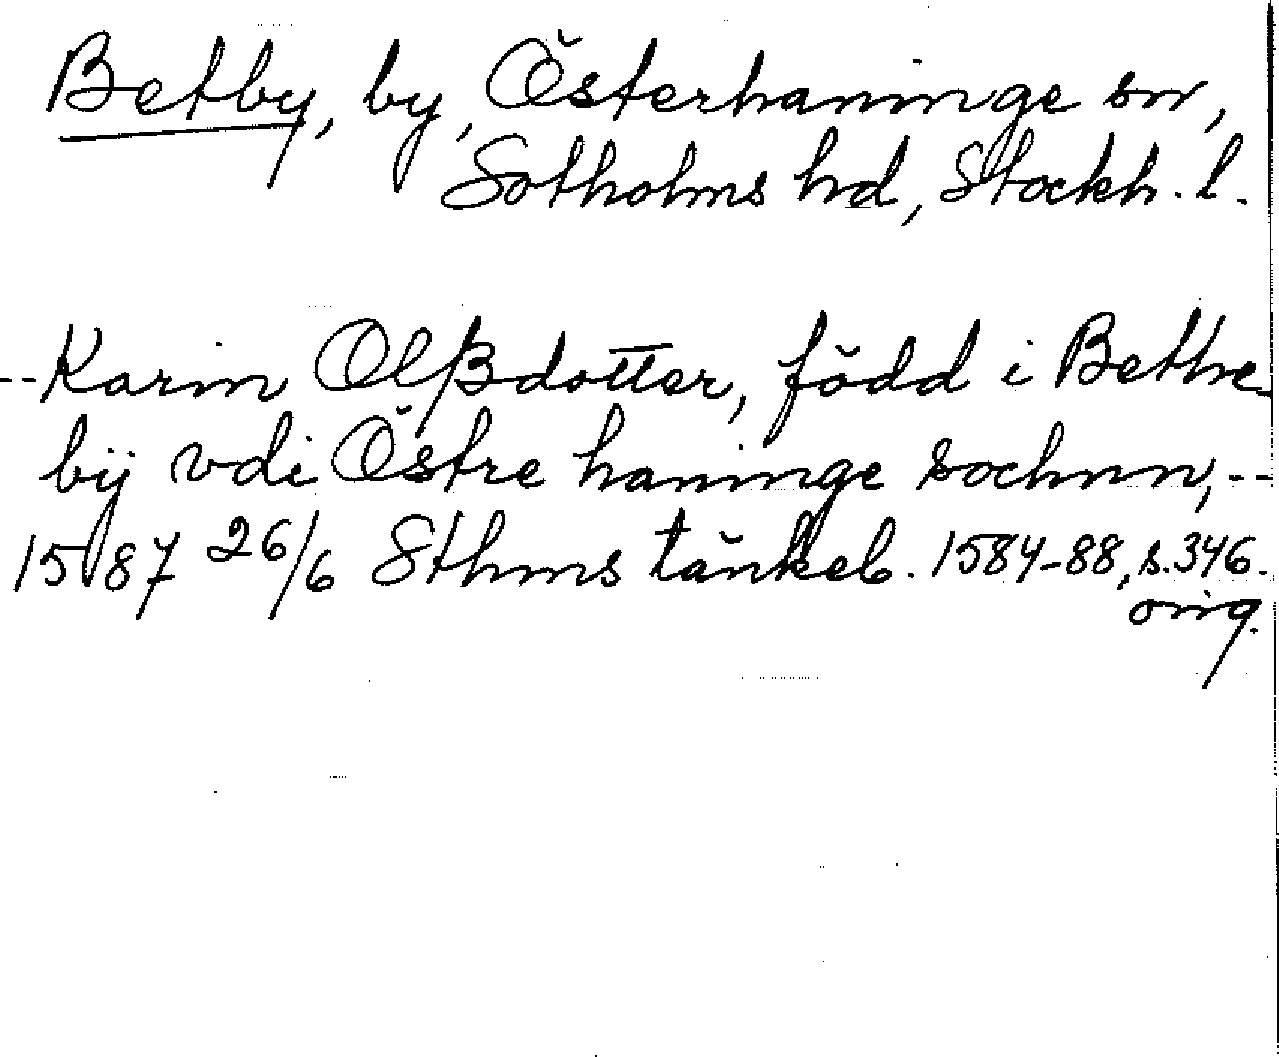 Betby, by, Österhaninge sn,
Sotholms hd, Stockh. l.
--Karin Olßdotter, född i Bethe
bÿ vdi Östre haninge sochnn,--
1587 26/6 Sthms tänkeb. 1584-88, s. 346.
orig.